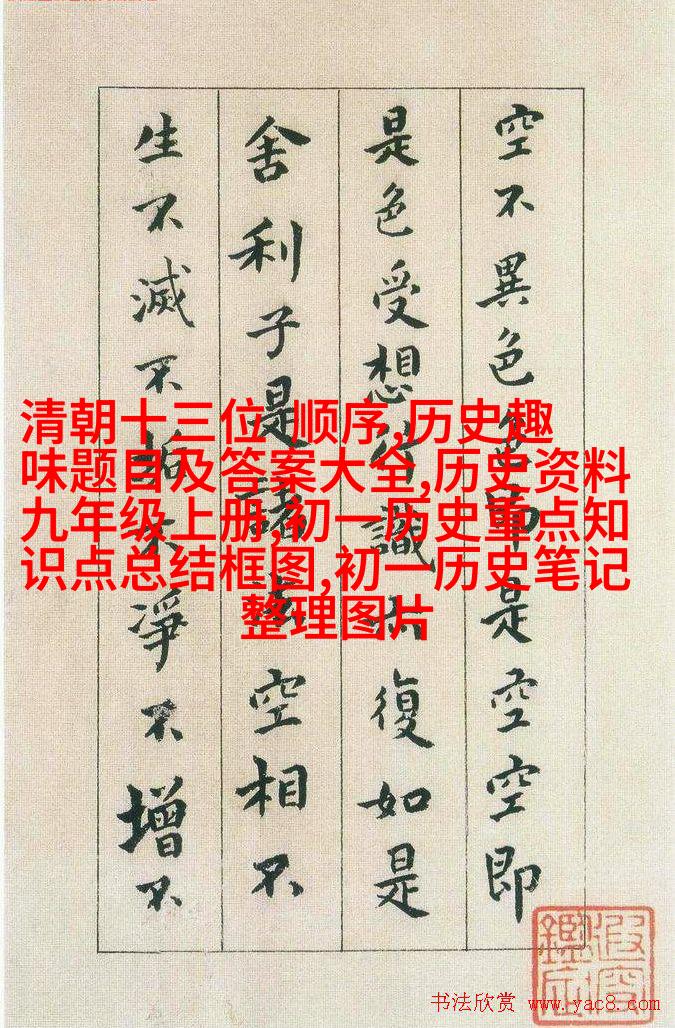 空不異色色即是空空即
是色受想行識亦復如是
舍利子是諸法空相不
生不滅不垢不淨不增不
清朝十三位 顺序,历史趣
味题目及答案大全,历史资料
九年级上册,初一历史重点知
识点总结框图,初一历史笔记
整理图片
书法欣赏 www.yac8.com